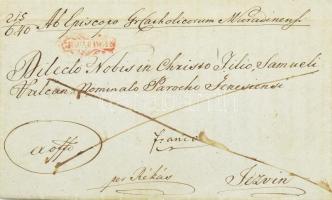 215
640 Ab Episcopo Gr Catholicorum
Dilecto Nobis in Christo Filio Samueli
Vulcan Nominato Parocho
franco
ex offo
per Rékás Jezvin